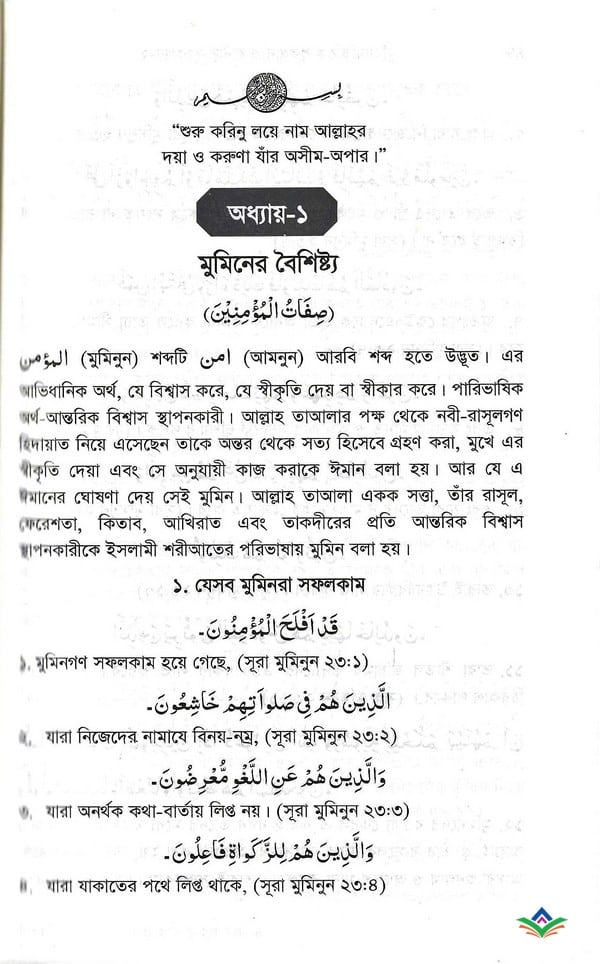 “শুরু করিনু লয়ে নাম আল্লাহর
দয়া ও করুণা যাঁর অসীম-অপার।”
অধ্যায়-১
মুমিনের বৈশিষ্ট্য
(صِفَاتُ الْمُؤْمِنِيْنَ)
المؤمن (মুমিনুন) শব্দটি امن (আমনুন) আরবি শব্দ হতে উদ্ভূত। এর
আভিধানিক অর্থ, যে বিশ্বাস করে, যে স্বীকৃতি দেয় বা স্বীকার করে। পারিভাষিক
অর্থ-আন্তরিক বিশ্বাস স্থাপনকারী। আল্লাহ তাআলার পক্ষ থেকে নবী-রাসূলগণ
হিদায়াত নিয়ে এসেছেন তাকে অন্তর থেকে সত্য হিসেবে গ্রহণ করা, মুখে এর
স্বীকৃতি দেয়া এবং সে অনুযায়ী কাজ করাকে ঈমান বলা হয়। আর যে এ
ঈমানের ঘোষণা দেয় সেই মুমিন। আল্লাহ তাআলা একক সত্তা, তাঁর রাসূল,
ফেরেশতা, কিতাব, আখিরাত এবং তাকদীরের প্রতি আন্তরিক বিশ্বাস
স্থাপনকারীকে ইসলামী শরীআতের পরিভাষায় মুমিন বলা হয়।
১. যেসব মুমিনরা সফলকাম
قَدْ اَفْلَحَ الْمُؤْمِنُونَ۔
১. মুমিনগণ সফলকাম হয়ে গেছে, (সূরা মুমিনুন ২৩:১)
الَّذِينَ هُمْ فِي صَلَوَاتِهِمْ خَاشِعُونَ۔
যারা নিজেদের নামাযে বিনয়-নম্র, (সূরা মুমিনুন ২৩:২)
وَالَّذِينَ هُمْ عَنِ اللَّغْوِ مُّعْرِضُونَ۔
যারা অনর্থক কথা-বার্তায় লিপ্ত নয়। (সূরা মুমিনুন ২৩:৩)
وَالَّذِينَ هُمْ لِلزَّكَوَاةِ فَاعِلُونَ۔
যারা যাকাতের পথে লিপ্ত থাকে, (সূরা মুমিনুন ২৩:৪)